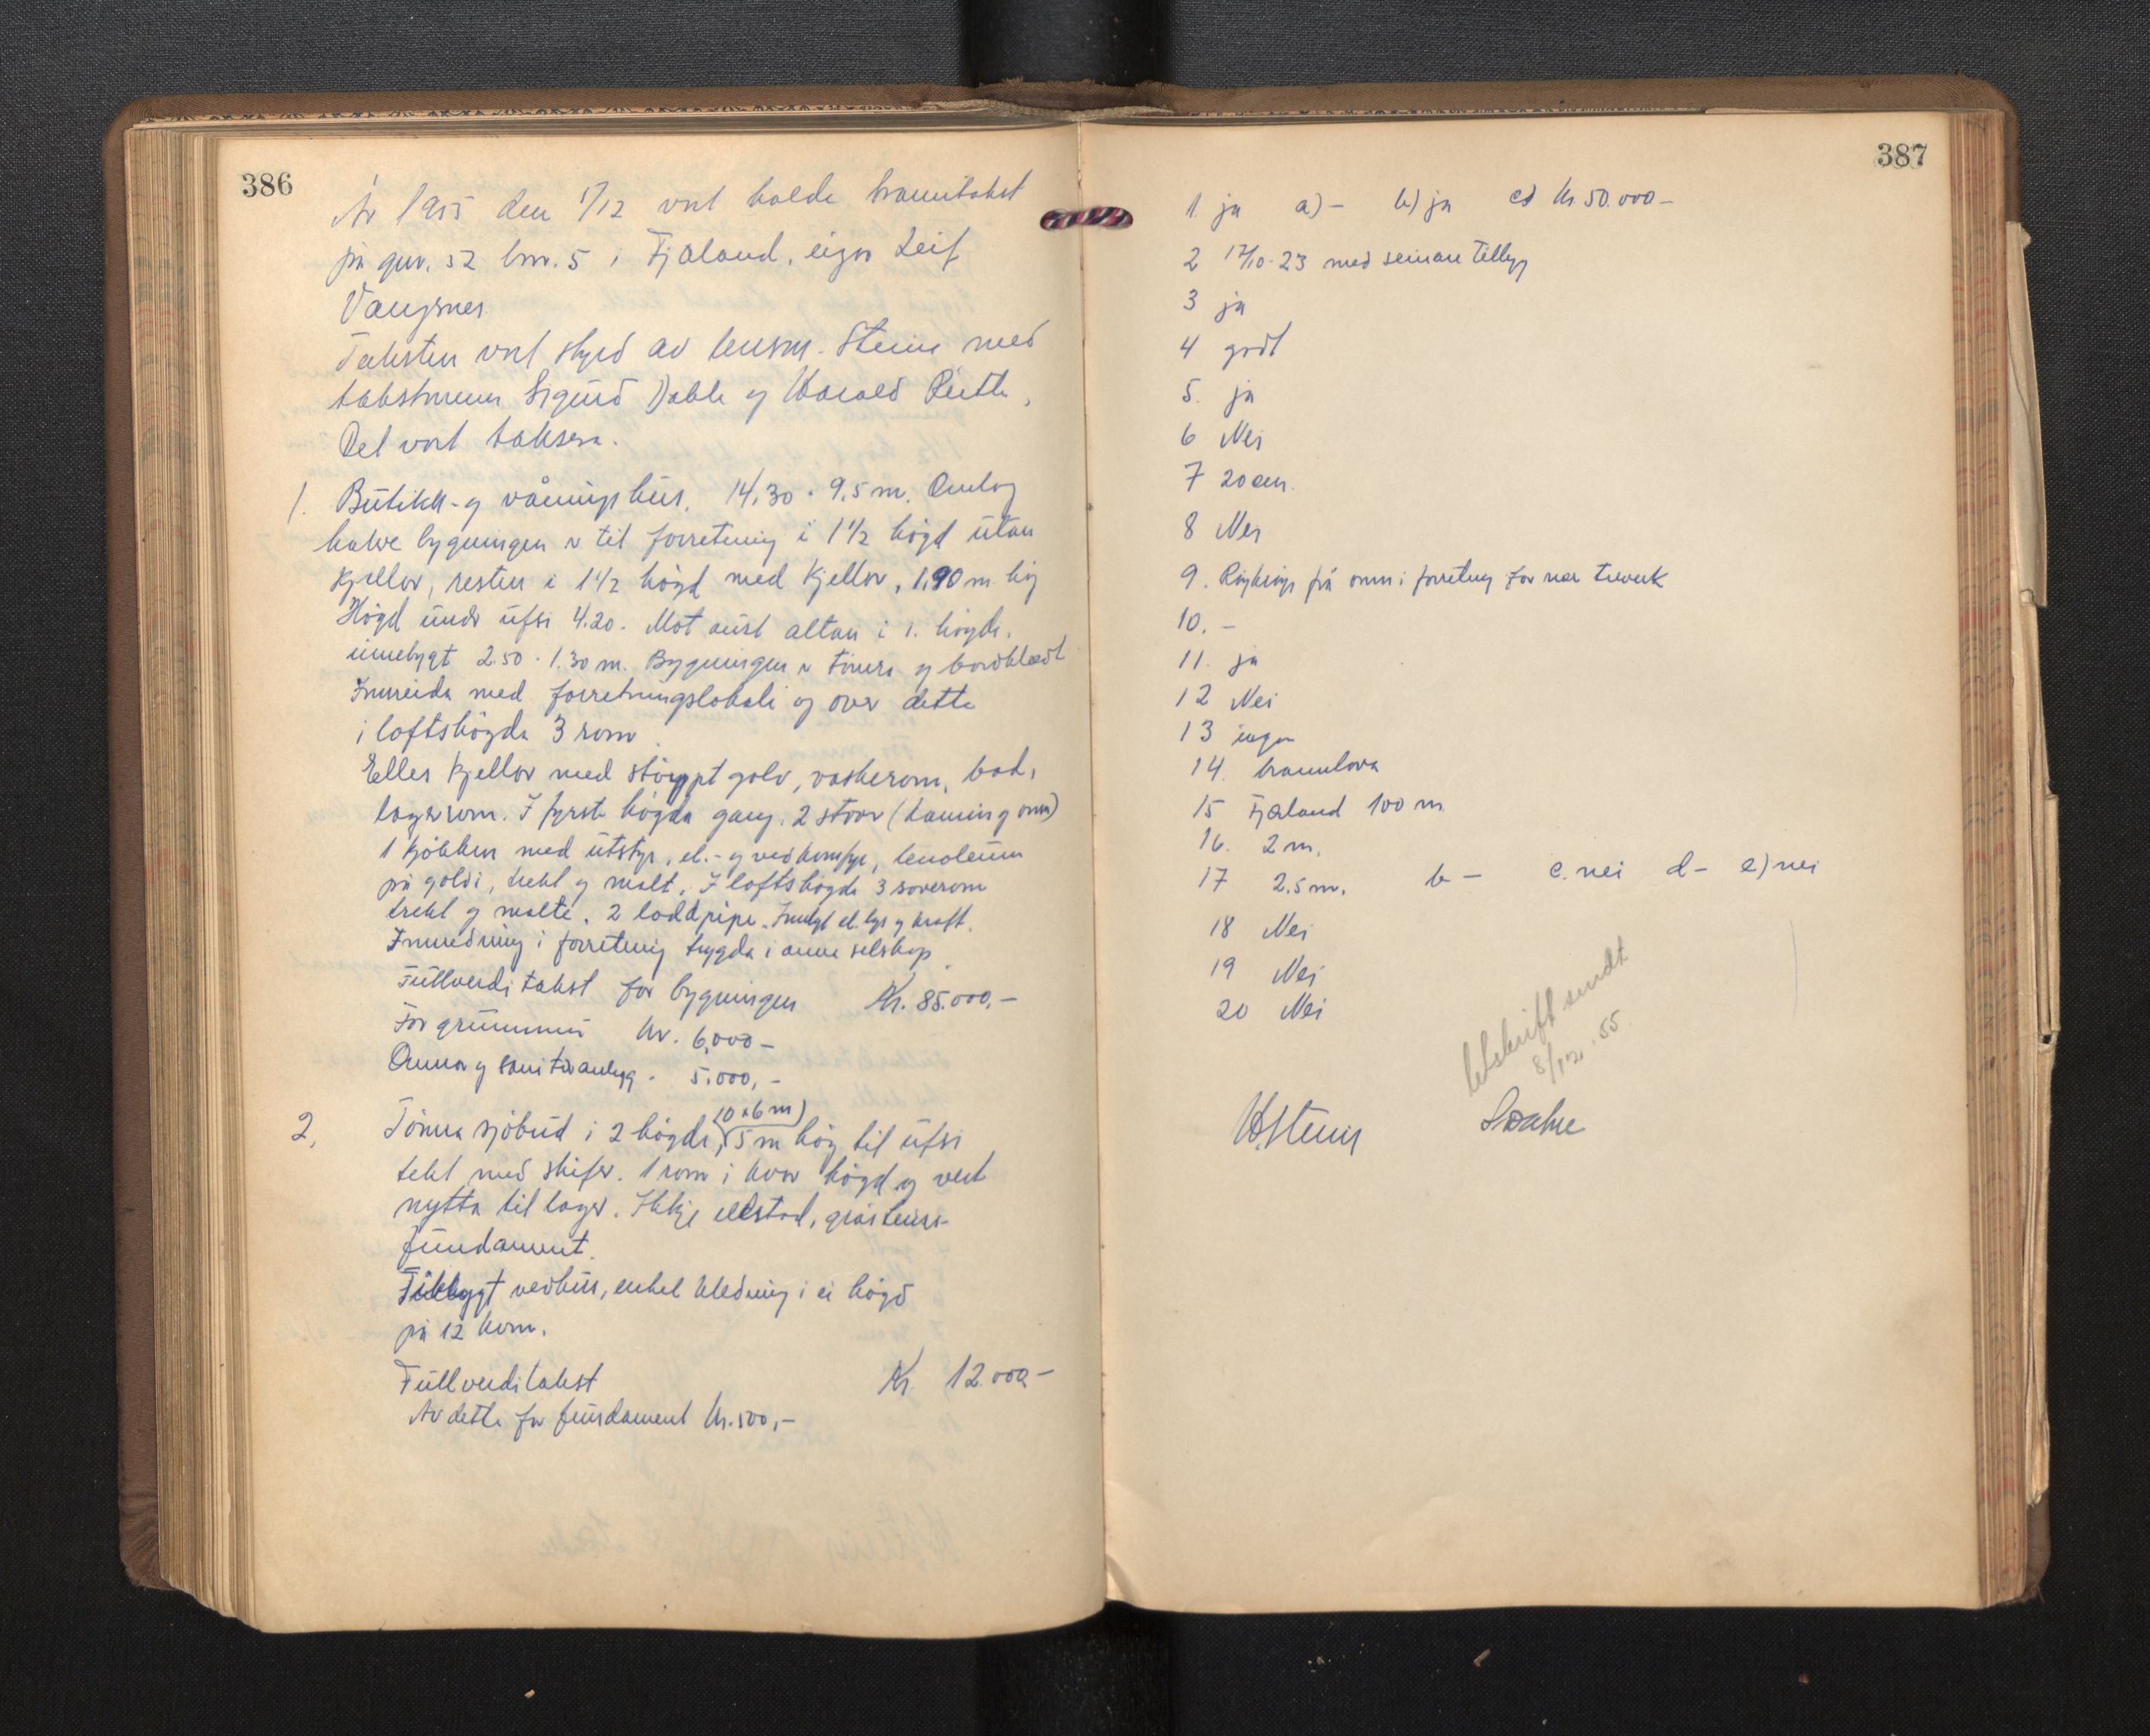 386
År 1955 den 1/12 vart halde branntakst
på gnr. 52 bnr. 5 i Fjæland, eigar Leif
Vangsnes
Taksten vart styrd av lensm. Steine med
takstmenn Sigurd Dahle og Harald
Det vart taksera.
1. Butikk- og våningshus. 14,30 · 9,5 m. Omlag
halve bygningen er til forretning i 1 1/2 høgd utan
kjellar, resten i 1 1/2 høgd med kjellar, 1,90 m høg
Høgd under ufsi 4.20. Mot aust altan i 1. høgde.
innebygt 2.50 · 1.30 m. Bygningen er tømra og bordklædt
Innreida med forretningslokale og over dette
i loftshøgda 3 rom
Elles kjellar med støypt golv, vaskerom, bad,
lagerrom. I fyrste høgda gang, 2 stover (kamin og omn)
1 kjøkken med utstyr, el.- og vedkomfyr, lenoleum
på golvi, trekt og malt. I loftshøgda 3 soverom
trekt og malte. 2 loddpipe. Innlagt el. lys og kraft.
Innreidning i forretning trygda i anna selskap
Fullverditakst for bygningen Kr. 85.000,-
For grunnmur kr. 6,000 -
Omnar og sanitæranlegg - 5.000,-
(10 x 6 m)
2, Tømra sjøbud i 2 høgdi, 5 m høg til ufsi
tekt med skifer. 1 rom i kvar høgd og vert
nytta til lager. Ikkje eldstad, gråsteins-
fundament.
Tilbygt vedhus, enkel kledning i ei høgd
på 12 kvm.
Fullverditakst Kr. 12.000,-
Av dette for fundament kr. 500,-
387
1. ja a) - b) ja c) kr 50.000 -
2 17/10-23 med seinare tillegg
3 ja
4 godt
5. ja
6 Nei
7 20 cm.
8 Nei
9. Røykrøyr frå omn i forretning for nær treverk
10. -
11. ja
12 Nei
13 ingen
14. brannlova
15 Fjæland 100 m
16. 2 m.
17 2,5 m. b - c. nei d - e) nei
18 Nei
19 Nei
20 Nei
Utskrift sendt
8/12.55.
H Steine S Dahle